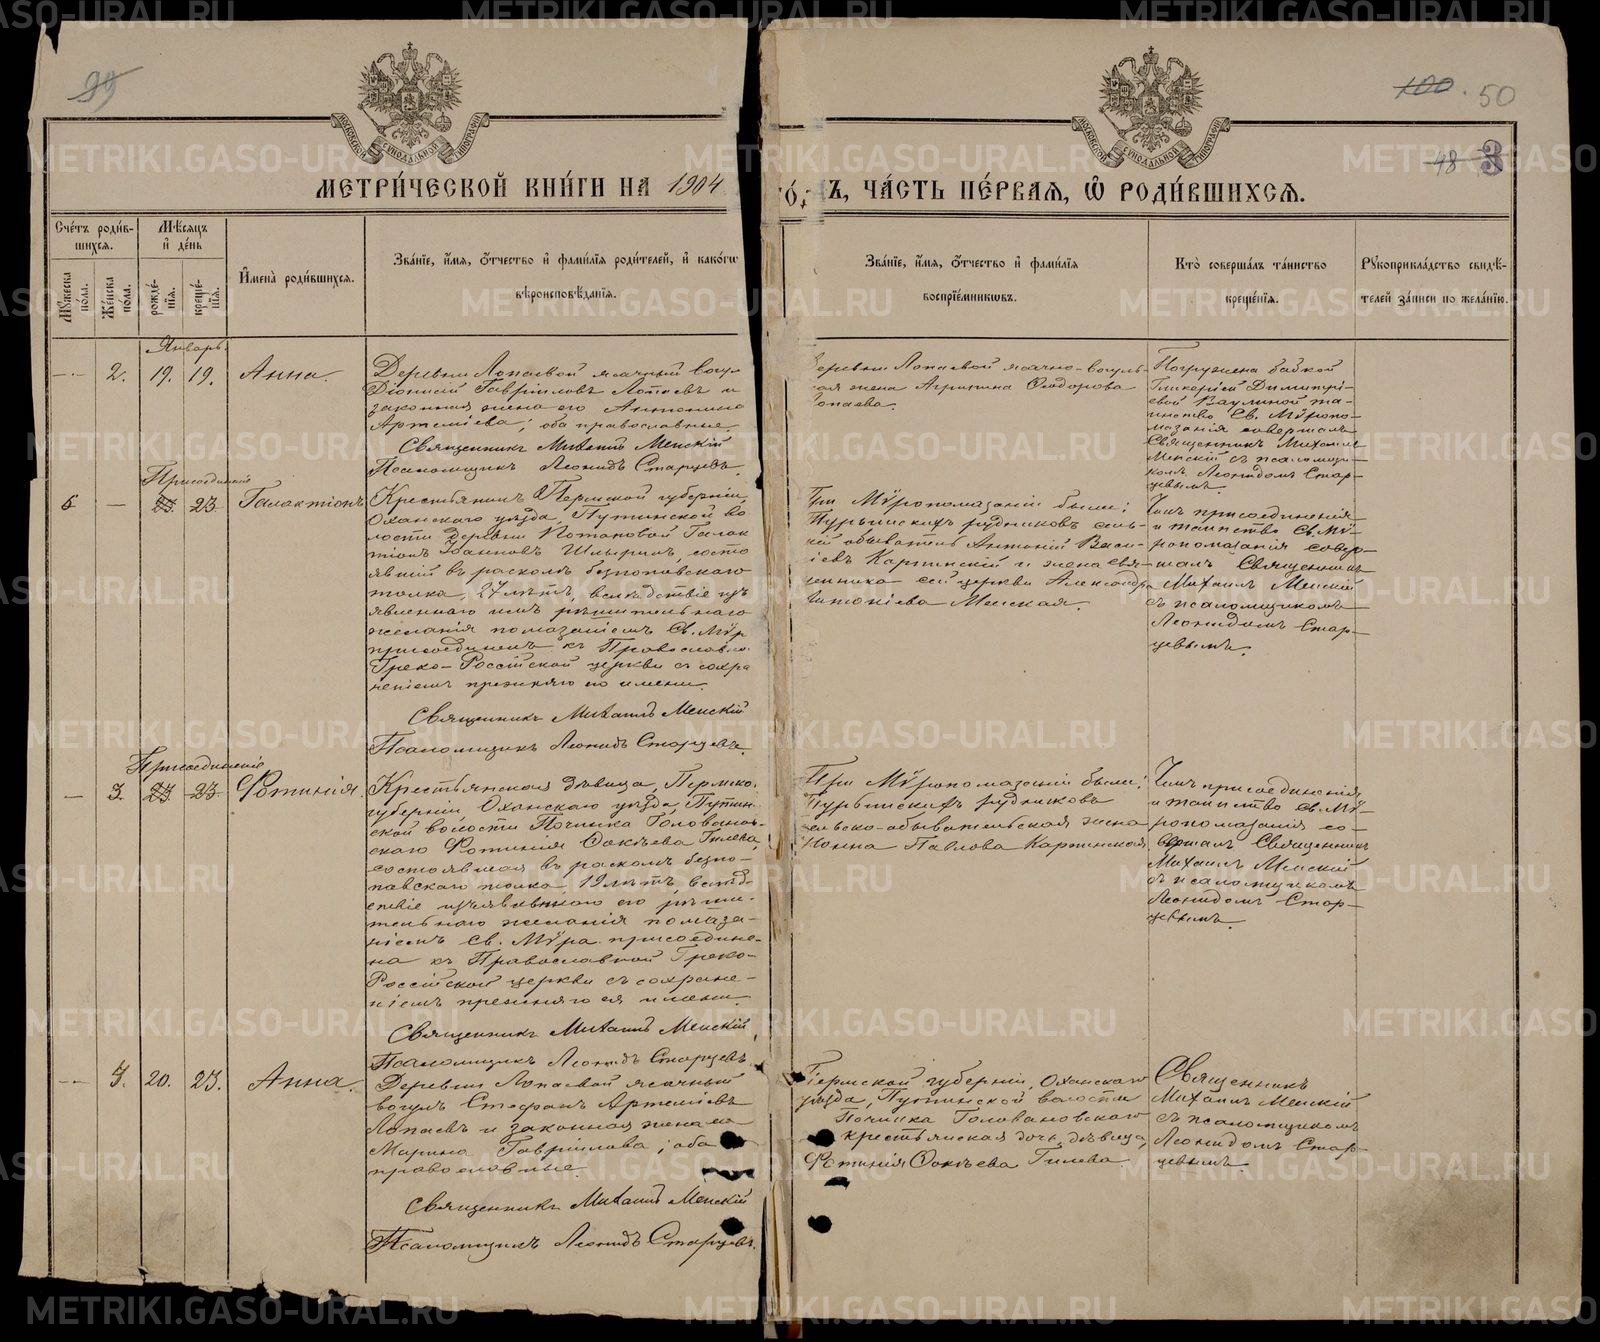 99
100. 50
48 3
МЕТРИ́ЧЕСКОЙ КНИ́ГИ НА 1904 ГО́ДЪ, ЧА́СТЬ ПЕ́РВАЯ, Ѡ РОДИ́ВШИХСѦ.
Сче́тъ роди́в-
шихся.
Мѣ́сяцъ
и де́нь
Мꙋ́жеска по́ла.
Же́нска по́ла.
рожде́-нїя.
креще́-нїя.
И҆мена̀ роди́вшихся.
Зва́нїе, и҆́мя, ѻ҆́тчество и҆ фами́лїя роди́телей, и҆ како́гѡ
вѣроисповѣ́данїя.
Зва́нїе, и҆́мя, ѻ҆́тчество и҆ фами́лїя
воспрїе́мникѡвъ.
Кто̀ соверша́лъ та́инство
креще́нїя.
Рꙋкоприкла́дство свидѣ́-
телей за́писи по жела́нїю.
Январь.
— 2. 19. 19. Анна.
Деревни Лопаевой ясачный вогул
Діонисій Гавріиловъ Лопаевъ и
законная жена его Антонина
Артеміева; оба православные
Священникъ Михаилъ Менскій
Псаломщикъ Леонидъ Старцевъ.
деревни Лопаевой ясачно-вогуль-
ская жена Агрипина Ѳеодорова
Лопаева.
Погружена бабкой
Гликеріей Димитрі-
евой Ваулиной та-
инство Св. Мѵропо-
мазанія совершалъ
Священникъ Михаилъ
Менскій съ псаломщи-
комъ Леонидомъ Стар-
цевымъ.
Присоединеніе
6 — 23 23 Галактіонъ
Крестьянинъ Пермской губерніи,
Оханскаго уѣзда, Путинской во
лости деревни Потаповой Галак
тіонъ Іоанновъ Шлыринъ, состо
явшій въ расколѣ безпоповскаго
толка, 27 лѣтъ, вслѣдствіе изъ
явленнаго имъ рѣшительнаго
желанія помазаніемъ Св. Мѵр
присоединенъ къ Православно
Греко-Россійской церкви съ сохра
неніемъ прежняго его имени.
Священникъ Михаилъ Менскій
Псаломщикъ Леонидъ Старцевъ.
При Мѵропомазаніи были:
Турьинскихъ рудниковъ сель-
скій обыватель Антоній Васи-
ліевъ Карпинскій и жена свя-
щенника сей церкви Александра
Антоніева Менская.
Чинъ присоединенія
и таинство Св. Мѵ-
ропомазанія совер-
шалъ Священникъ
Михаилъ Менскій
съ псаломщикомъ
Леонидомъ Стар-
цевымъ.
Присоединеніе
— 3. 23 23 Фотинія.
Крестьянская дѣвица, Пермско
губерніи Оханскаго уѣзда, Путин-
ской волости Починка Головановъ-
скаго Фотинія Ѳокѣева Гилева,
состоявшая въ расколѣ безпо-
повскаго толка, 19 лѣтъ, вслѣд-
ствіе изъявленнаго ею рѣши-
тельнаго желанія помаза-
ніемъ Св. Мѵра присоедине-
на къ Православной Греко-
Россійской церкви съ сохране-
ніемъ прежняго ея имени.
Священникъ Михаилъ Менскій
Псаломщикъ Леонидъ Старцевъ.
При Мѵропомазаніи были:
Турьинскихъ рудниковъ
сельско-обывательская жена
Іоанна Павлова Карпинская.
Чинъ присоединенія
и таинство Св. Мѵ-
ропомазанія со-
вершалъ Священникъ
Михаилъ Менскій
съ псаломщикомъ
Леонидомъ Стар-
цевымъ.
— 4. 20. 23. Анна.
Деревни Лопаевой ясачный
вогулъ Стефанъ Артеміевъ
Лопаевъ и законная жена его
Марина Гавріилова; оба
православные.
Священникъ Михаилъ Менскій
Псаломщикъ Леонидъ Старцевъ.
Пермской губерніи, Оханскаго
уѣзда, Путинской волости
Починка Головановскаго
крестьянская дочь, дѣвица,
Фотинія Ѳокѣева Гилева.
Священникъ
Михаилъ Менскій
съ псаломщикомъ
Леонидомъ Стар-
цевымъ.
METRIKI.GASO-URAL.RU